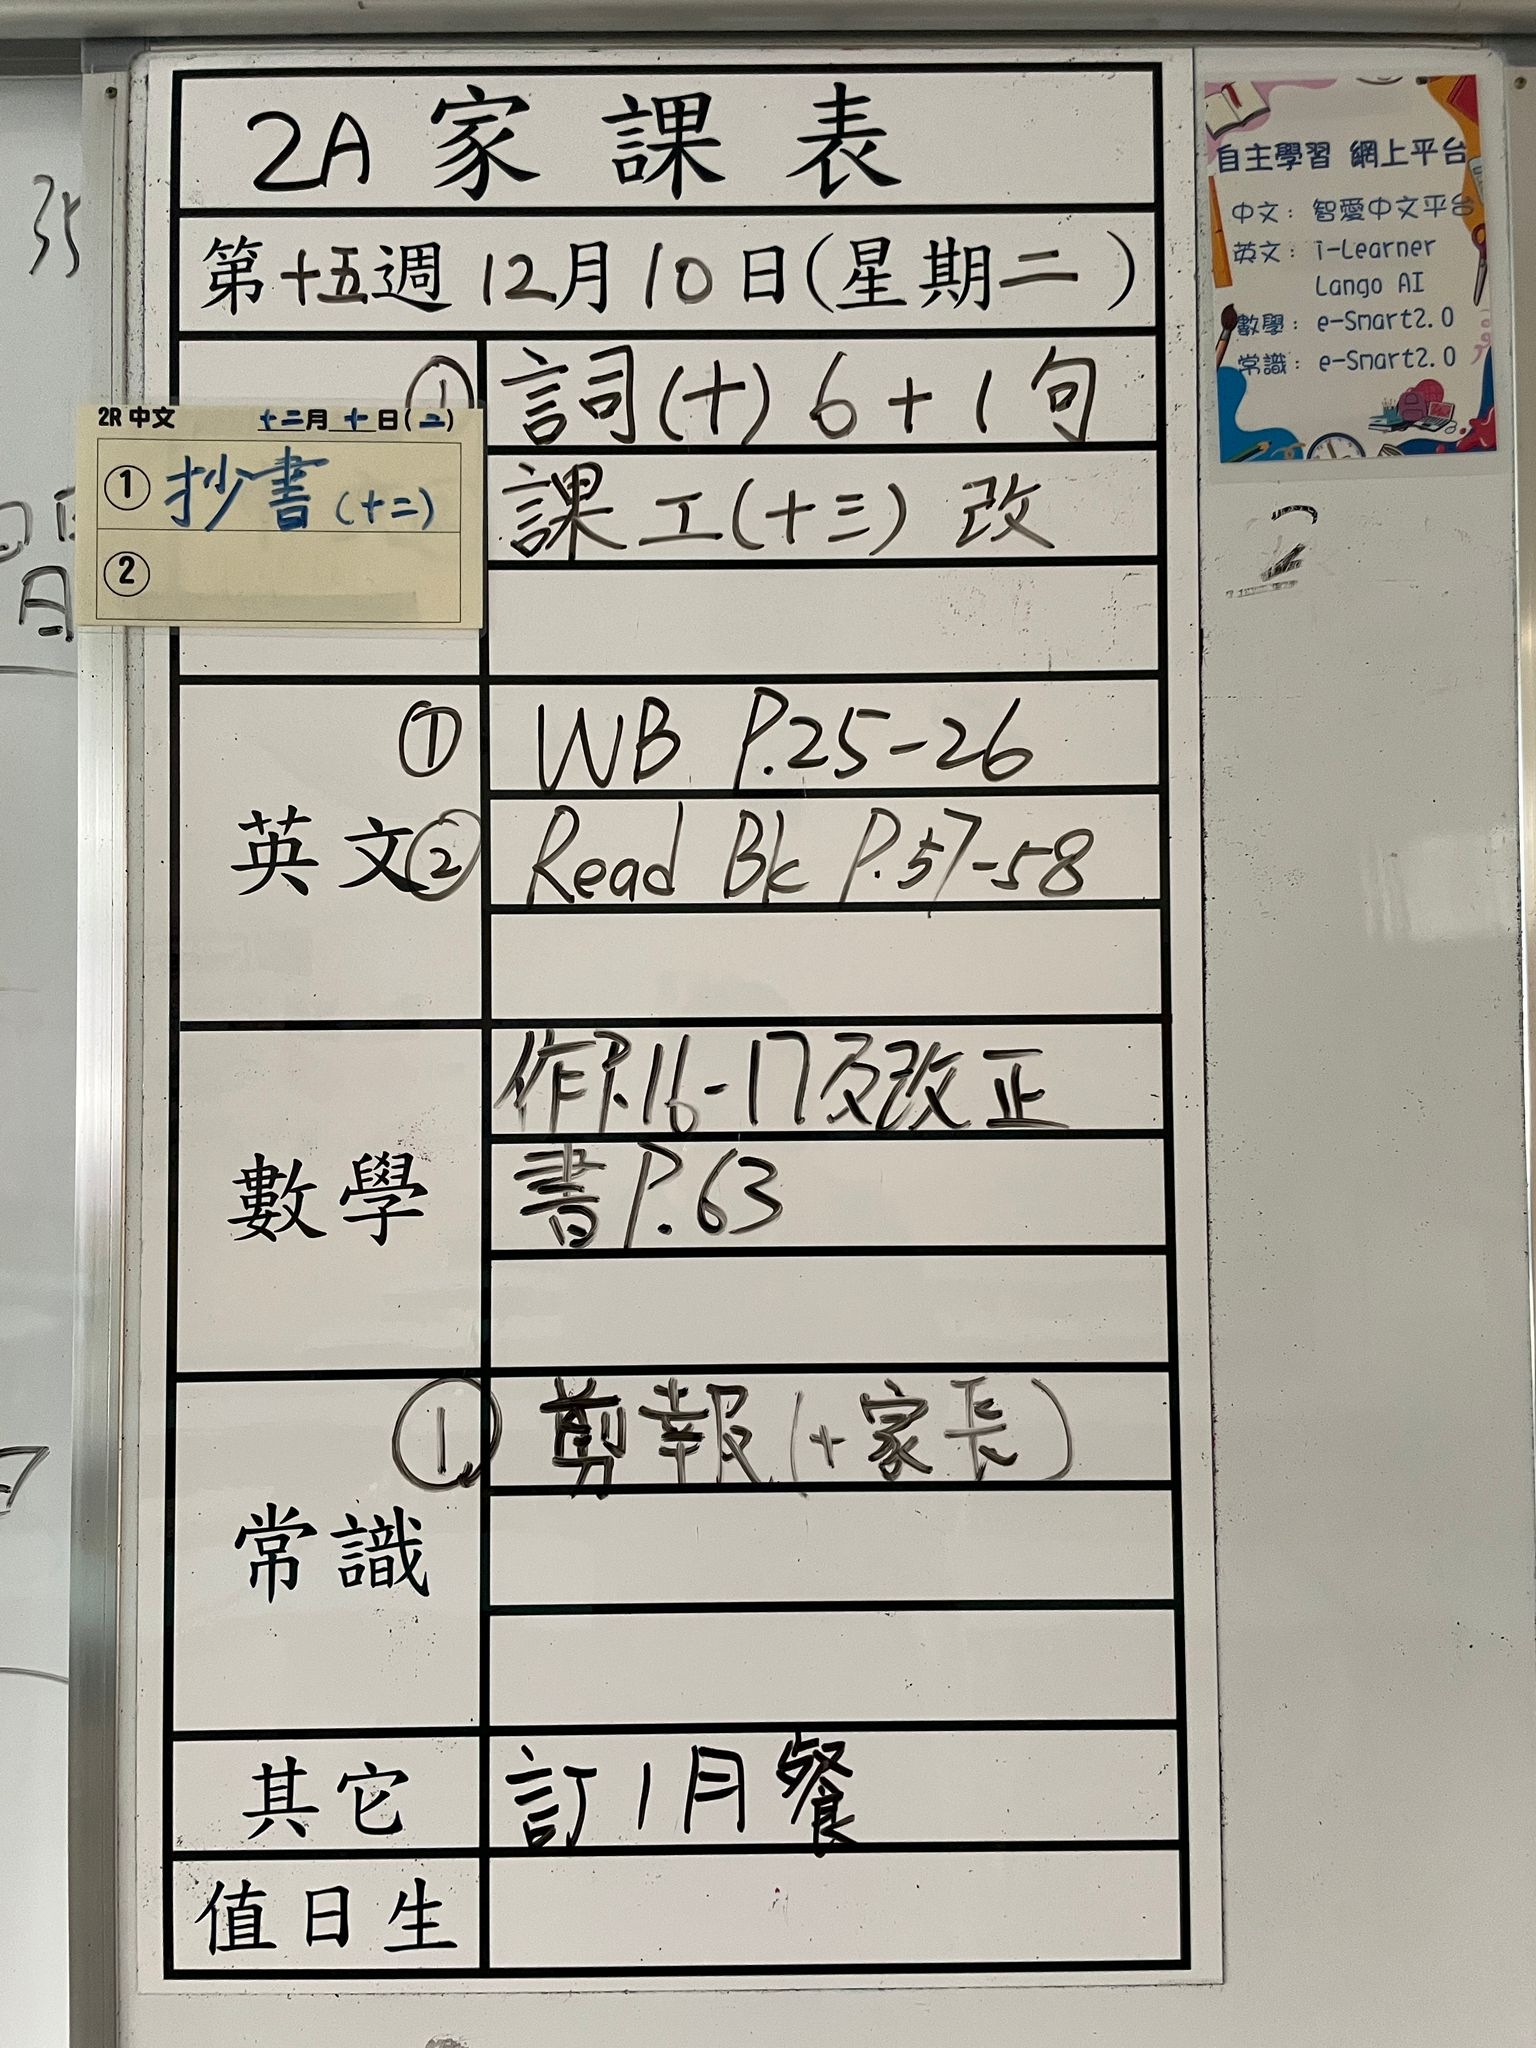 2A 家課表
第十五週 12月10日(星期二)
① 詞(十) 6+1句
課工(十三) 改
2R 中文 十二月十日(二)
① 抄書(十二)
②
英文
① WB P.25-26
② Read Bk P.57-58
數學
作P.16-17及改正
書P.63
常識
① 剪報(+家長)
其它 訂1月餐
值日生
自主學習 網上平台
中文: 智愛中文平台
英文: i-Learner
Lango AI
數學: e-Smart2.0
常識: e-Smart2.0